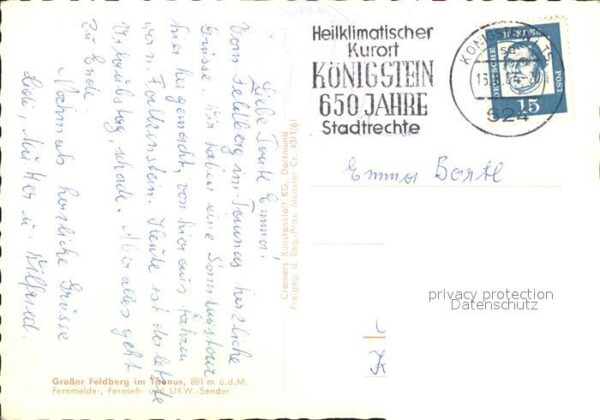 Liebe Tante Emma!
Vom Feldberg im Taunus herzliche
Grüsse. Wir haben eine Sonntagstour
hier her gemacht, von hier aus fahren
wir n. Falkenstein. Heute ist der letzte
Urlaubstag, schade. Aber alles geht
zu Ende.
Nochmals herzliche Grüsse
Mutter u. Wilfried.
Großer Feldberg im Taunus, 881 m ü.d.M.
Fernmelde-, Fernseh- und UKW.-Sender
Cramers Kunstanstalt KG. Dortmund
Freigeg. d. Reg.-Präs. Münster Cr. 4311/61
Heilklimatischer
Kurort
KÖNIGSTEIN
650 JAHRE
Stadtrechte
824
DEUTSCHE BUNDESPOST
15
Emma Bartl
privacy protection
Datenschutz